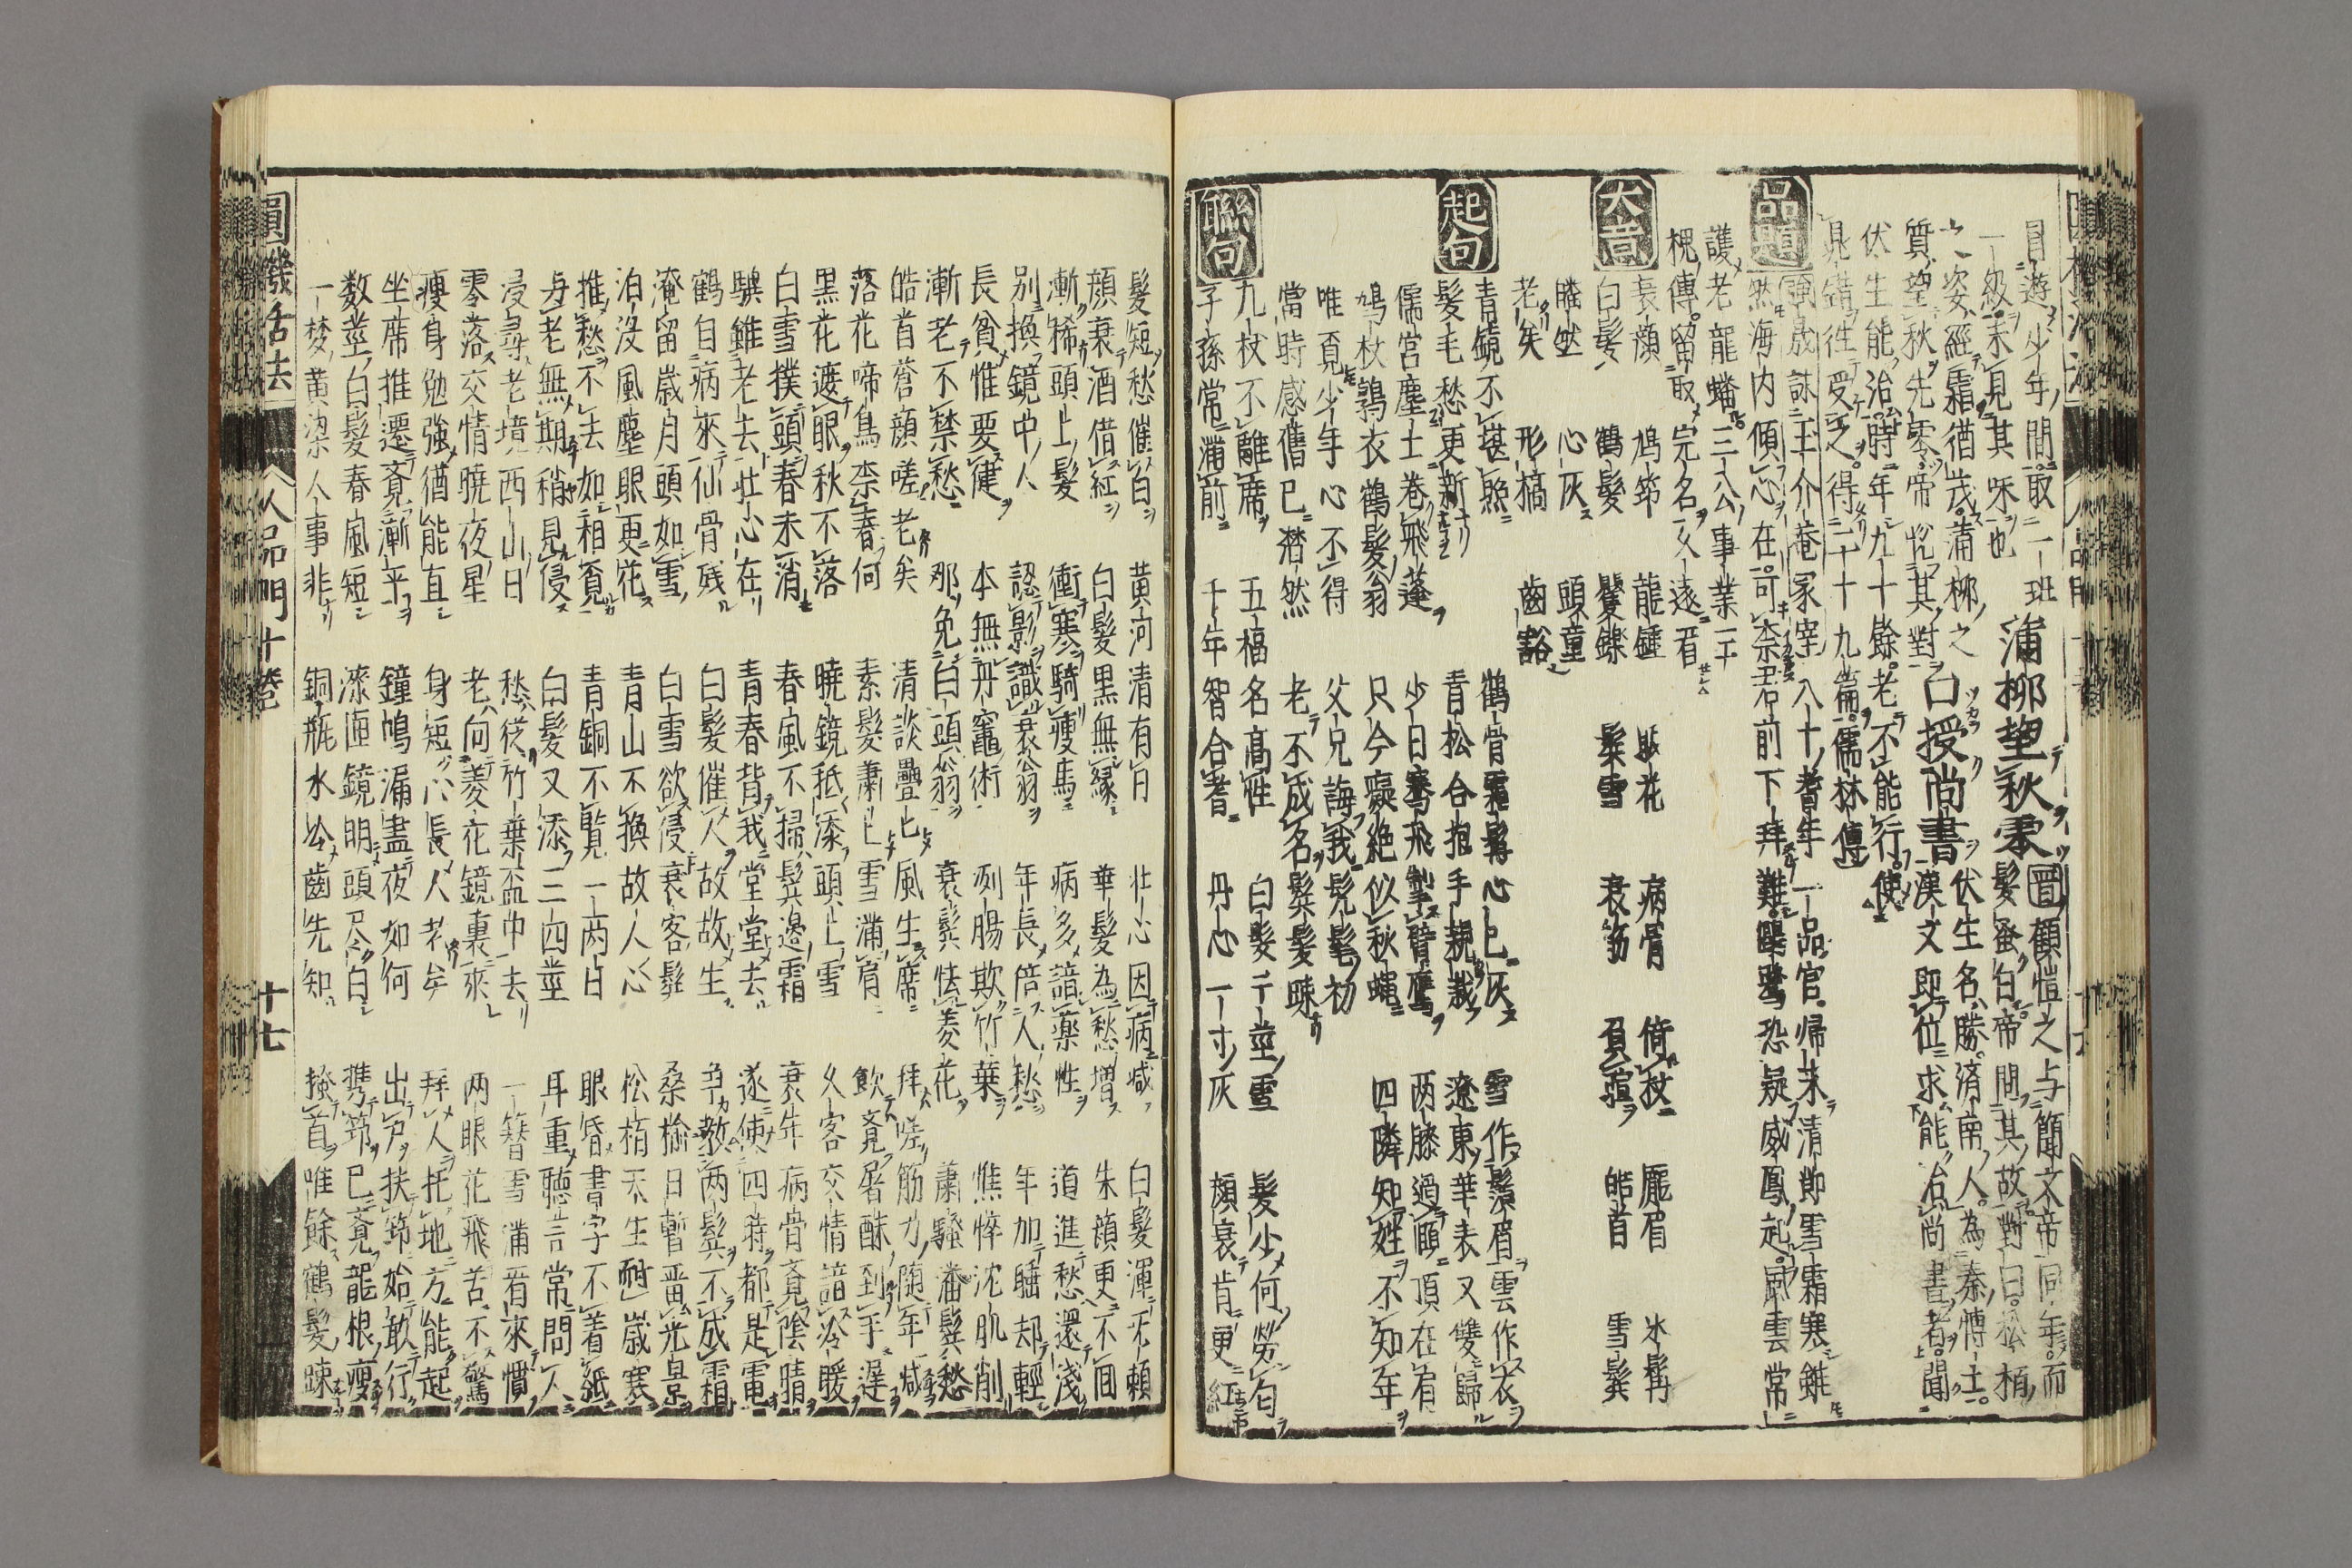 目遊少年間取二一班 蒲柳望秋零 顧愷之与簡文帝同年而
一級未見其咊也 髮蚤白帝問其故對曰松栢
之姿經霜猶茂蒲柳之 口授尚書 伏生名勝済南人為秦博士
質望秋先零帝悅其對 漢文即位求能治尚書者聞
伏生能治時年九十餘老不能行使
晁錯往受之得二十九篇儒林傳
品題
風晟誺王介菴冢宰 八十耆年一品官帰来清節雪霜寒雖
然海内傾心在可奈君前下拜難 恐疑威鳳起風雲常
護老龍蟠三公事業一平
槐傳留取完名久遠看
大意
衰顔 鳩笻 龍鍾 眼花 病骨 倚杖 龐眉 氷髯
白髮 鶴髮 矍鑠 鬓雪 衰筋 負暄 皓首 雪鬂
皤然 心灰 頭童
老矣 形槁 齒豁
起句
青鏡不堪照 鶴骨霜髯心已灰 雪作鬚眉雲作衣
髮毛愁更新 青松合抱手親栽 遼東華表又雙歸
儒宮塵土巷飛蓬 少日騫飛掣臂鷹 两膝過頤頂在肩
鳩杖鶉衣鶴髮翁 只今癡絶似秋蝇 四隣知姓不知年
唯覓少年心不得 父兄誨我髧髦初
當時感舊已潸然 老不成名鬂髮踈
聯句
九杖不離席 五福名高性 白髮千莖雪 髮少何勞白
子孫常滿前 千年智合耆 丹心一寸灰 顔衰肯更紅
圓機活法 人品門十巻 十七
髮短愁催白 黄河清有日 壮心因病减 白髮渾不頼
顔衰酒借紅 白髮黒無縁 華髮為愁増 朱顔更不囬
漸稀頭上髮 衝寒騎瘦馬 病多諳藥性 道進愁還浅
别換鏡中人 認影識衰翁 年長倍人愁 年加睡却輕
長貧惟要健 本無丹竈術 冽腸欺竹葉 憔悴沈肌削
漸老不禁愁 那免白頭翁 衰鬂怯菱花 蕭騷潘鬂愁
皓首蒼顔嗟老矣 清談疊疊風生席 拜嗟筋力随年减
落花啼鳥柰春何 素髮蕭蕭雪滿肩 飲覔屠酥到手遲
黒花遮眼秋不落 暁鏡秖添頭上雪 久客交情諳冷暖
白雪撲頭春未消 春風不掃鬂邊霜 衰年病骨覔陰晴
驥雖老去壮心在 青春背我堂堂去 遂使四時都是電
鶴自病來仙骨残 白髮催人故故生 争教两鬂不成霜
淹留歳月頭如雪 白雪欲侵衰客髩 桑榆日暫畱光景
泊没風塵眼更花 青山不換故人心 松栢天生耐歳寒
推愁不去如相覓 青銅不覧一两日 眼昏書字不着紙
与老無期稍見侵 白髮又添三四莖 耳重聽言常問人
浸尋老境西山日 愁從竹葉盃中去 一簪雪滿看來慣
零落交情暁夜星 老向菱花鏡裏來 两眼花飛苦不驚
瘦身勉強猶能直 身短心長人老矣 拜人托地方能起
坐席推遷覔漸平 鐘鳴漏盡夜如何 出户扶笻始敢行
数莖白髮春風短 漆匣鏡明頭尽白 携笻已覔龍根瘦
一梦黄粱人事非 銅瓶水冷齒先知 搔首唯餘鶴髮踈